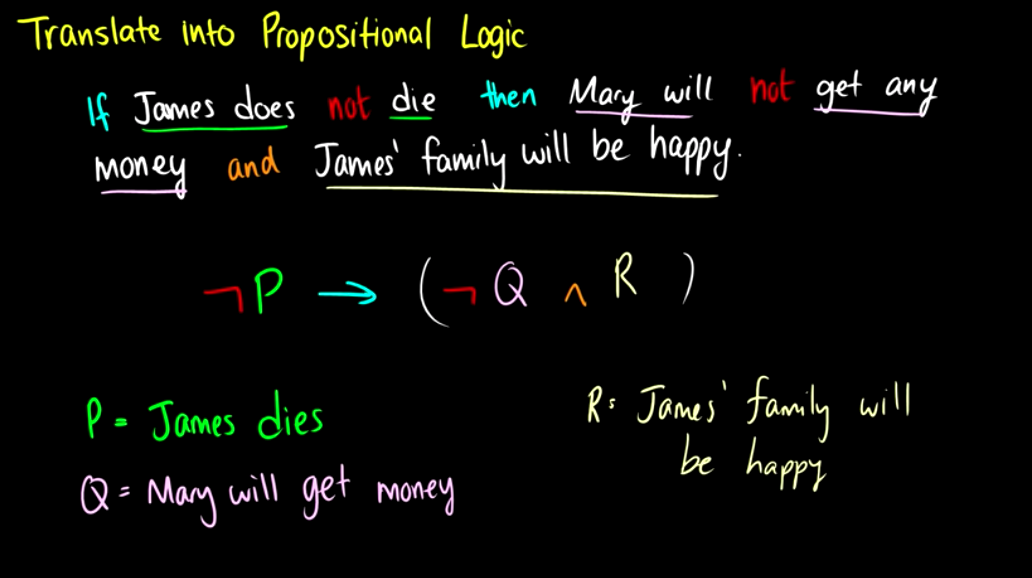 Translate into Propositional Logic
If James does not die then Mary will not get any
money and James' family will be happy.
¬P → (¬Q ∧ R)
P = James dies
R: James' family will
be happy
Q = Mary will get money